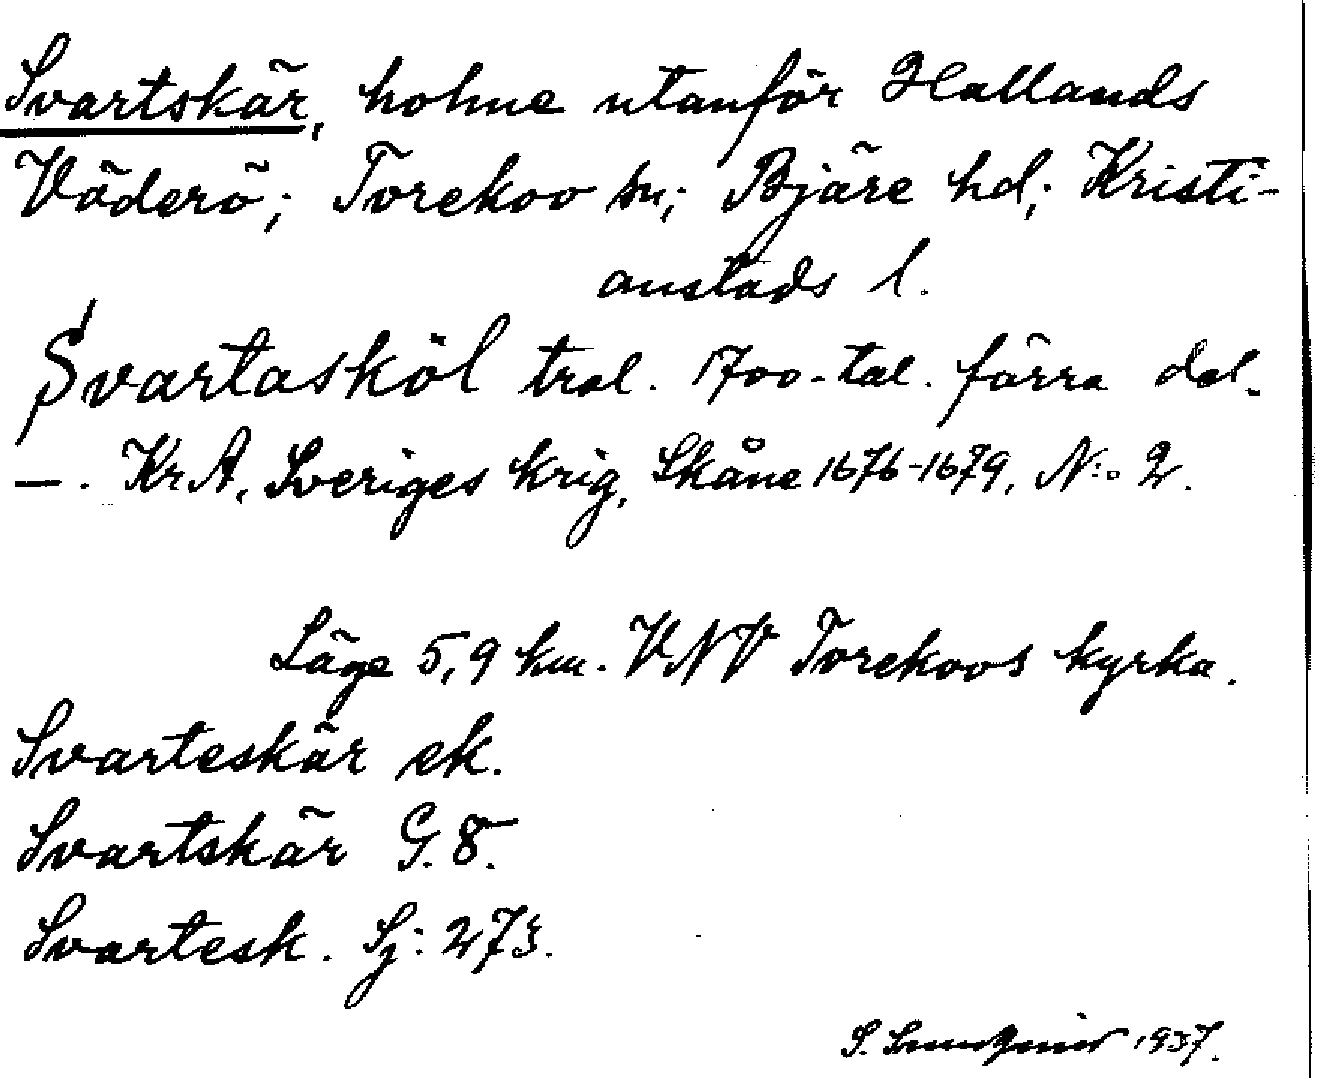 Svartskär, holme utanför Hallands
Väderö; Torekov sn; Bjäre hd; Kristi-
anstads l.
Svartasköl trol. 1700-tal. förra del.
—. KrA, Sveriges krig, Skåne 1676-1679, N:o 2.
Läge 5,9 km. VNV Torekovs kyrka.
Svarteskär ek.
Svartskär G. 8.
Svartesk. Sj: 273.
S. 1937.